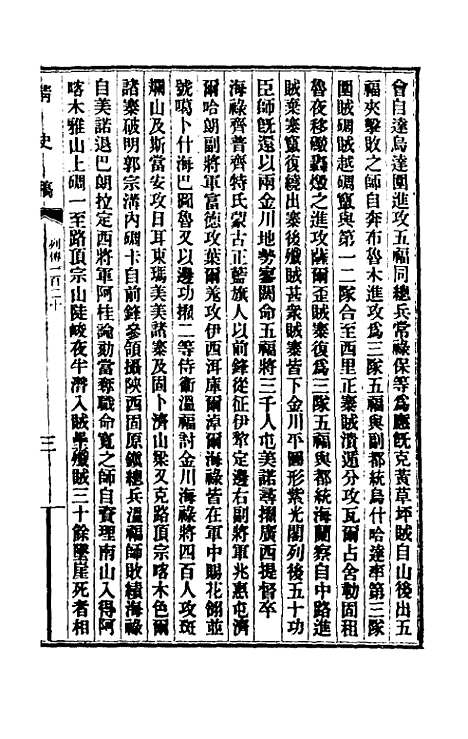 會自達烏達圍進攻五福同總兵常祿保等爲應旣克黃草坪賊自山後出五
福夾擊敗之師自奔布魯木進攻爲三隊五福與副都統烏什哈達率第三隊
圍賊碉賊越碉竄與第一二隊合至西里正寨賊潰遁分攻瓦爾占舍勒固租
魯夜移礮轟燬之進攻薩爾歪賊寨復爲三隊五福與都統海蘭察自中路進
賊棄寨竄復繞出寨後殲賊甚衆賊寨皆下金川平圖形紫光閣列後五十功
臣師旣還以兩金川地勢寥闊命五福將三千人屯美諾尋擢廣西提督卒
海祿齊普齊特氏蒙古正藍旗人以前鋒從征伊犂定邊右副將軍兆惠屯濟
爾哈朗副將軍富德攻葉爾羌攻伊西洱庫爾淖爾海祿皆在軍中賜花翎並
號噶卜什海巴圖魯又以邊功擢二等侍衛溫福討金川海祿將四百人攻斑
斕山及斯當安攻日耳東瑪美美諸寨及固卜濟山梁又克路頂宗喀木色爾
諸寨破明郭宗溝內碉卡自前鋒參領攝陝西固原鎮總兵溫福師敗績海祿
自美諾退巴朗拉定西將軍阿桂論劾當奪職命寬之師自資理南山入得阿
喀木雅山上碉一至路頂宗山陡峻夜半潛入賊壘殲賊三十餘墜崖死者相
清史稿
列傳一百二十
三